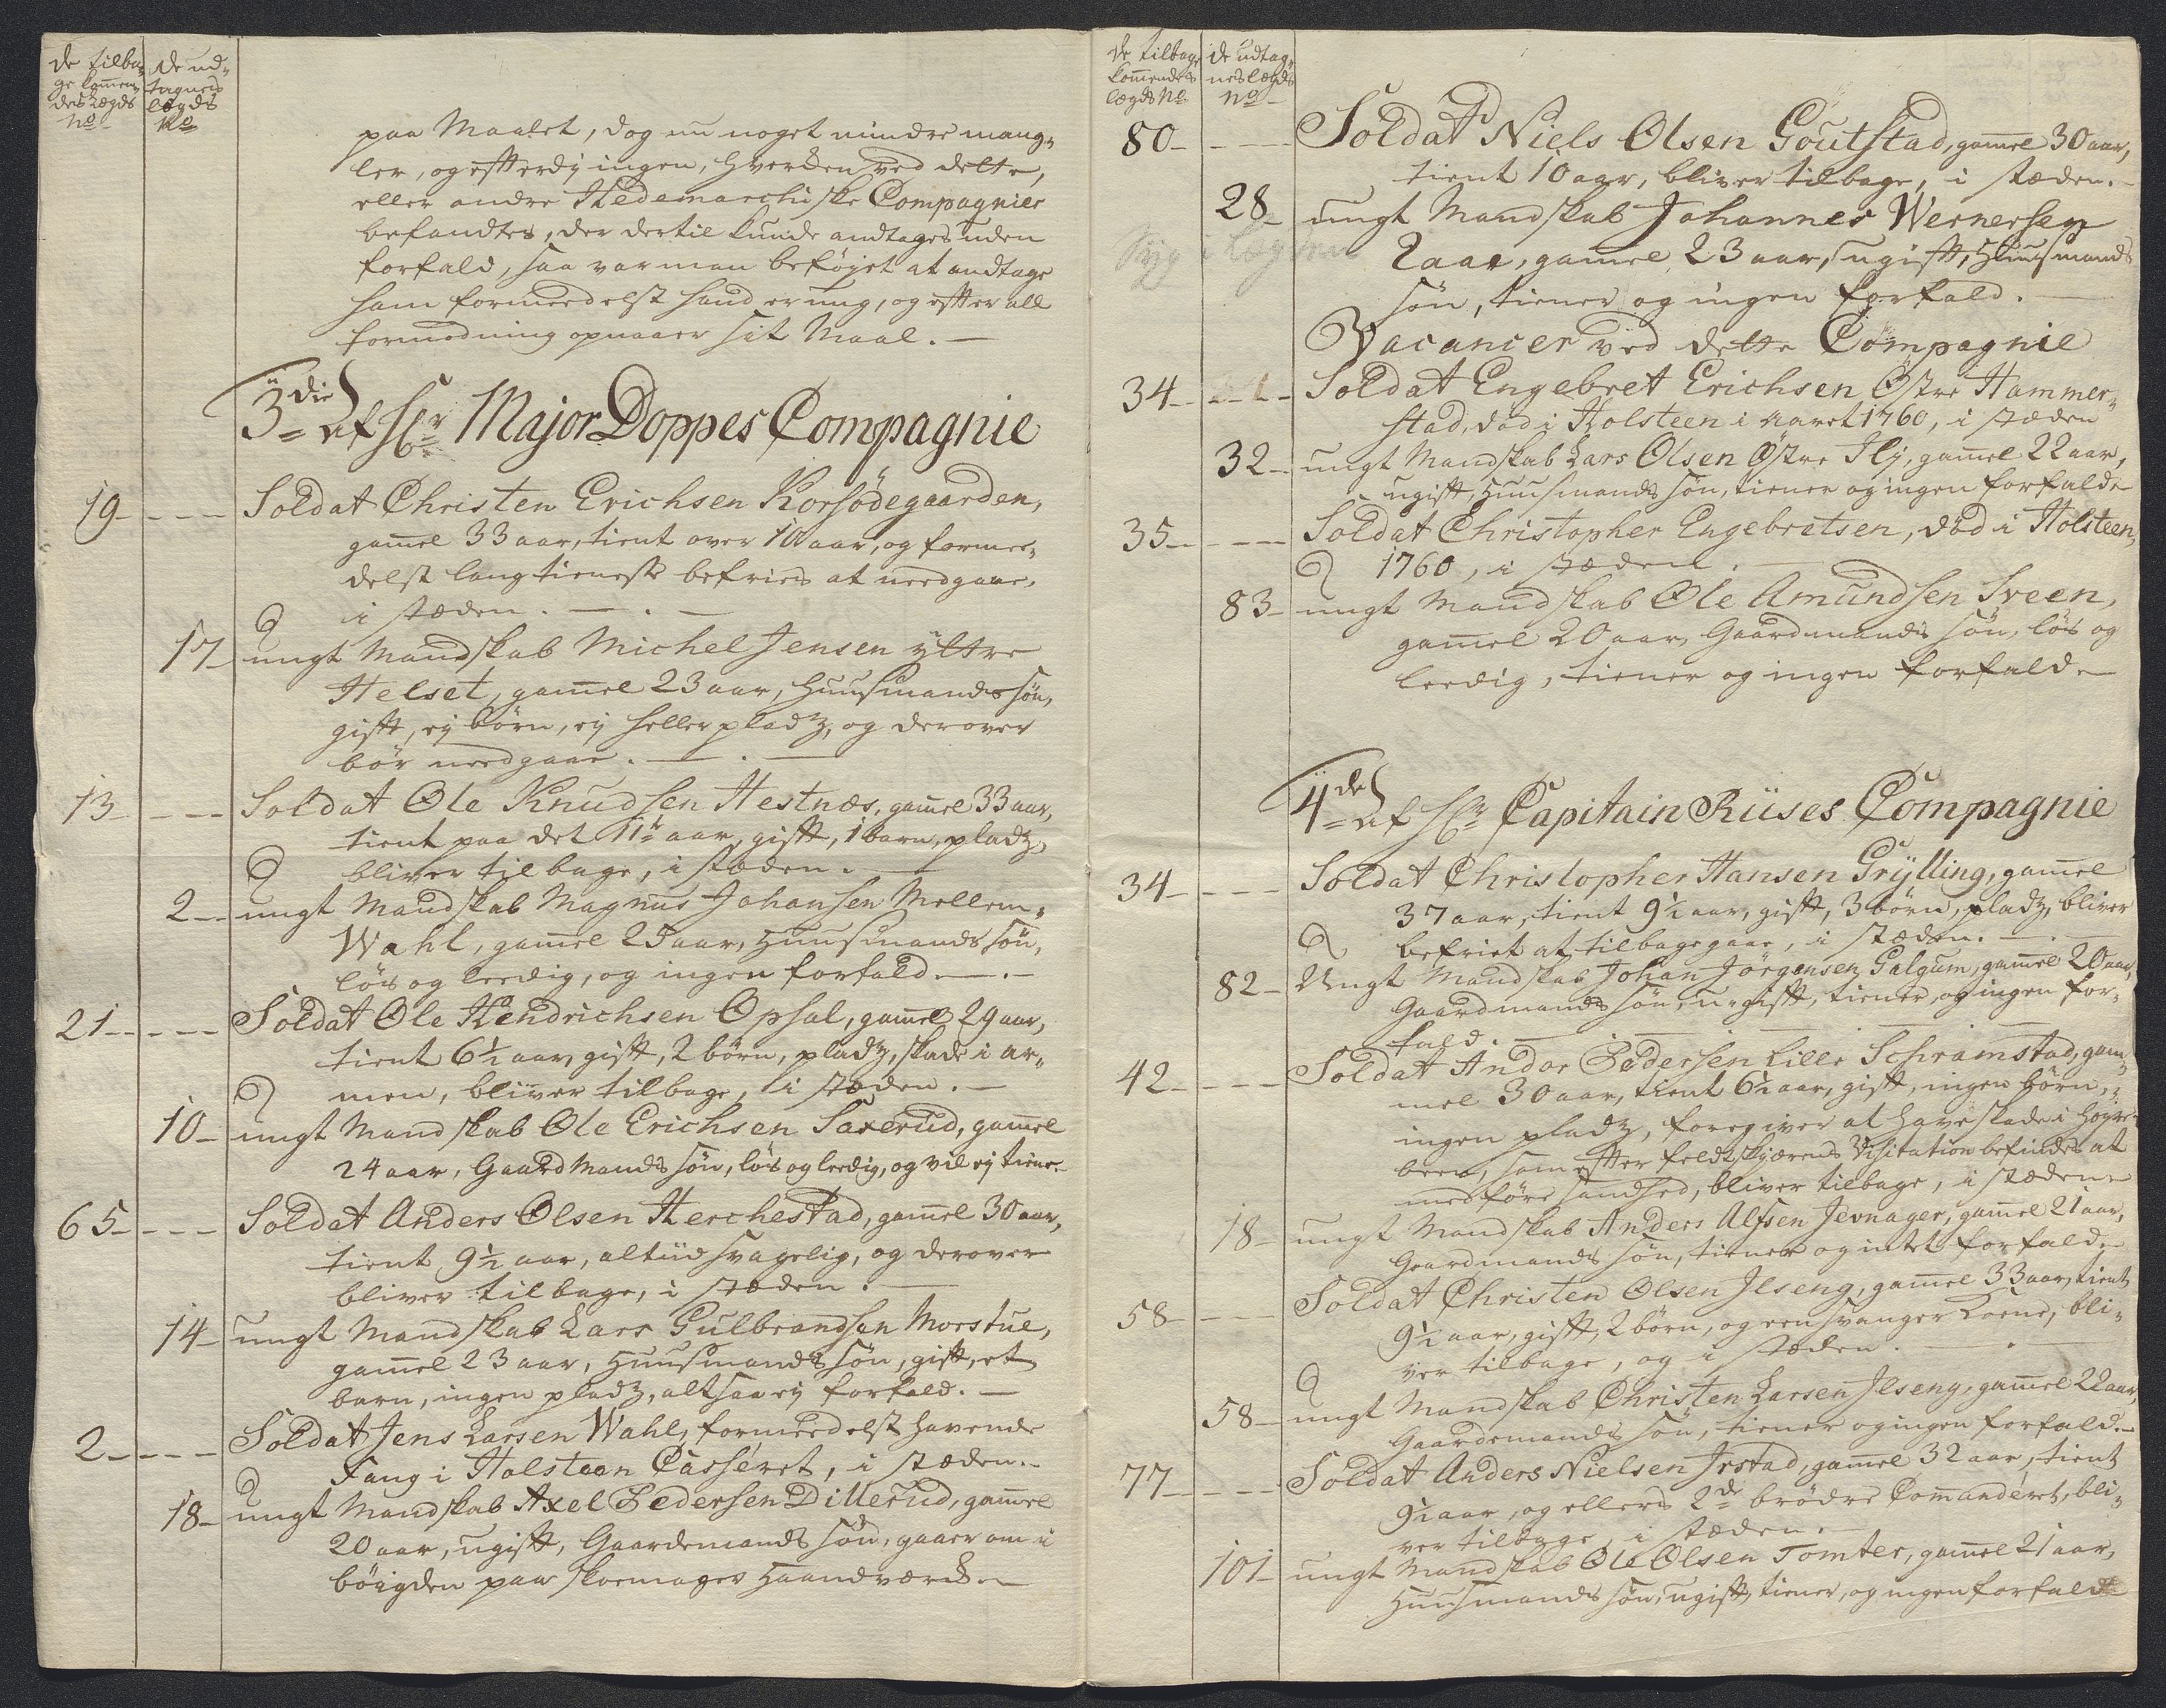 de tilba-
ge kommen-
des Lægds
No
de ud-
tagnes
lægds
No
paa Maalet, dog nu noget mindre mang-
ler, og efterdi ingen, hverken ved dette,
eller andre Hedemarchiske Compagnier
befandtes, der dertil kunde andtages uden
forfald, saa var man beføjet at andtage
ham formeedelst hand er ung, og efter all
formodning opnaaer sit Maal. —
3die af Hr Major Doppes Compagnie
19 - - - Soldat Christen Erichsen Korsødegaarden,
gamel 33 aar, tient over 10 aar, og formee-
delst lang tieneste befries at needgaae,
i stæden. — . —
17 ungt Mandskab Michel Jensen yttre
Helset, gamel 23 aar, Huusmands søn,
gift, ej børn, ej heller pladz, og derover
bør needgaae. — . —
13 - - - Soldat Ole Knudsen Hestnæs, gamel 33 aar,
tient paa det 11te aar, gift, 1 barn, pladz,
bliver tilbage, i stæden. —
2 - ungt Mandskab Magnus Johansen Mellem-
Wahl, gamel 25 aar, Huusmands søn,
løs og leedig, og ingen forfald. — . —
21 - - - Soldat Ole Hendrichsen Opsal, gamel 29 aar,
tient 6½ aar, gift, 2 børn, pladz, skade i ar-
men, bliver tilbage, i stæden. —
10 - ungt Mandskab Ole Erichsen Saxerud, gamel
24 aar, Gaardmands søn, løs og leedig, og vil ej tiene. —
65 - - - Soldat Anders Olsen Herchestad, gamel 30 aar,
tient 9½ aar, altiid svagelig, og derover
bliver tilbage, i stæden. —
14 - ungt Mandskab Lars Gulbrandsen Morstue,
gamel 23 aar, Huusmands søn, gift, et
barn, ingen pladz, altsaa ej forfald. —
2 - - - Soldat Jens Larsen Wahl, formeedelst havende
Fang i Holsteen Casseret, i stæden. —
18 - ungt Mandskab Axel Pedersen Dillerud, gamel
20 aar, ugift, Gaardemands søn, gaaer om i
bøigden paa skoemager Haandværk. —
de tilbage
kommendes
lægds No
de udtag-
nes lægds
No
80 - - - Soldat Niels Olsen Goutstad, gamel 30 aar,
tient 10 aar, bliver tilbage, i stæden. —
28 - ungt Mandskab Johannes Wernersen
Syg i
aar, gamel 23 aar, ugift, Huusmands
søn, tiener og ingen forfald. —
Vacancer ved dette Compagnie
34 - - - Soldat Engebret Erichsen Østre Hammer-
stad, død i Holsteen i aaret 1760, i stæden
32 - ungt Mandskab Lars Olsen Østre Ilj, gamel 22 aar,
ugift, Huusmands søn, tiener og ingen forfald. —
35 - - - Soldat Christopher Engebretsen, død i Holsteen,
1760, i stæden. —
83 - ungt Mandskab Ole Amundsen Sveen,
gamel 20 aar, Gaardmands søn, løs og
leedig, tiener og ingen forfald. —
4de af Hr Capitain Riises Compagnie
34 - - - Soldat Christopher Hansen Grÿlling, gamel
37 aar, tient 9½ aar, gift, 3 børn, pladz, bliver
befriet at tilbagegaae, i stæden. — . —
82 - Ungt Mandskab Johan Jørgensen Galgum, gamel 20 aar,
Gaardmands søn, u-gift, tiener, og ingen for-
fald. —
42 - - - Soldat Andor Pedersen Lille Schramstad, gam-
mel 30 aar, tient 6½ aar, gift, ingen børn,
ingen pladz, foregiver at have skade i høyre
been, som efter feldtskjærens Visitation befindes at
medføre sandhed, bliver tilbage, i stæden —
18 - ungt Mandskab Anders Alfsen Jevnager, gamel 21 aar,
Gaardmands søn, tiener og intet forfald. —
58 - - - Soldat Christen Olsen Ilseng, gamel 33 aar, tient
9½ aar, gift, 2 børn, og een svanger Kone, bli-
ver tilbage, og i stæden. — . —
58 - ungt Mandskab Christen Larsen Ilseng, gamel 22 aar,
Gaardemands søn, tiener og ingen forfald. —
77 - - - Soldat Anders Nielsen Irstad, gamel 32 aar, tient
9½ aar, og ellers 2de brødre Commanderet, bli-
ver tilbage, i stæden. —
101 - ungt Mandskab Ole Olsen Tomter, gamel 21 aar,
Huusmands søn, ugift, tiener, og ingen forfald